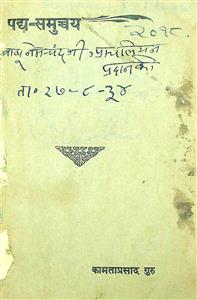 पद्य-समुच्चय
२०१८
बाबू नेमचंद जी
प्रदान की
ता० २७-८-३४
कामताप्रसाद गुरु